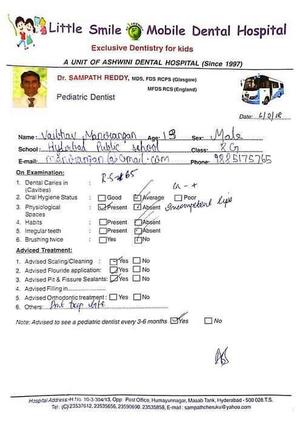 Little Smile Mobile Dental Hospital
Exclusive Dentistry for kids
A UNIT OF ASHWINI DENTAL HOSPITAL (Since 1997)
Dr. SAMPATH REDDY, MDS, FDS RCPS (Glasgow)
MFDS RCS (England)
Pediatric Dentist
Date:
Name: Vaibhav Manoranjan Age: 13 Sex: Male
School: Public School Class: 8G
E-mail: @gmail.com Phone: 9885175765
On Examination:
1. Dental Caries in
(Cavities)
2. Oral Hygiene Status Good Average Poor
3. Physiological Present Absent Incompetent lips
Spaces
4. Habits Present Absent
5. Irregular teeth Present Absent
6. Brushing twice Yes No
Adviced Treatment:
1. Advised Scaling/Cleaning : Yes No
2. Advised Flouride application: Yes No
3. Advised Pit & Fissure Sealants: Yes No
4. Advised Filling in
5. Advised Orthodontic treatment : Yes No
6. Others:
Note: Advised to see a pediatric dentist every 3-6 months Yes No
Hospital Address:-H No. 10-3-304/13, Opp. Post Office, Humayunnagar, Masab Tank, Hyderabad - 500 028 T.S.
Tel: (C) 23537612, 23535656, 23590690, 23535858, E-mail : sampathcheruku@yahoo.com